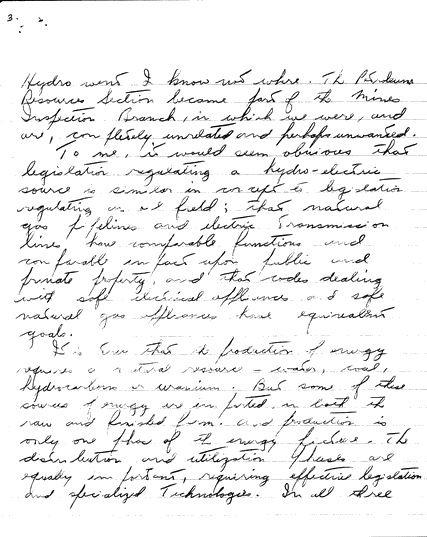 3.
Hydro went I know not where. The Petroleum
Resources Section became part of the Mines
Inspection Branch, in which we were, and
are, completely unrelated and perhaps unwanted.
To me, it would seem obvious that
legislation regulating a hydro-electric
source is similar in concept to legislation
regulating an oil field; that natural
gas pipelines and electric transmission
lines, have comparable functions and
comparable impact upon public and
private property, and that codes dealing
with safe electrical appliances and safe
natural gas appliances have equivalent
goals.
It is true that the production of energy
requires a natural resource - water, coal,
hydrocarbons or uranium. But some of these
sources of energy are imported, in both the
raw and finished form. and production is
only one phase of the energy picture. The
distribution and utilization phases are
equally important, requiring effective legislation
and specialized Technologies. In all three